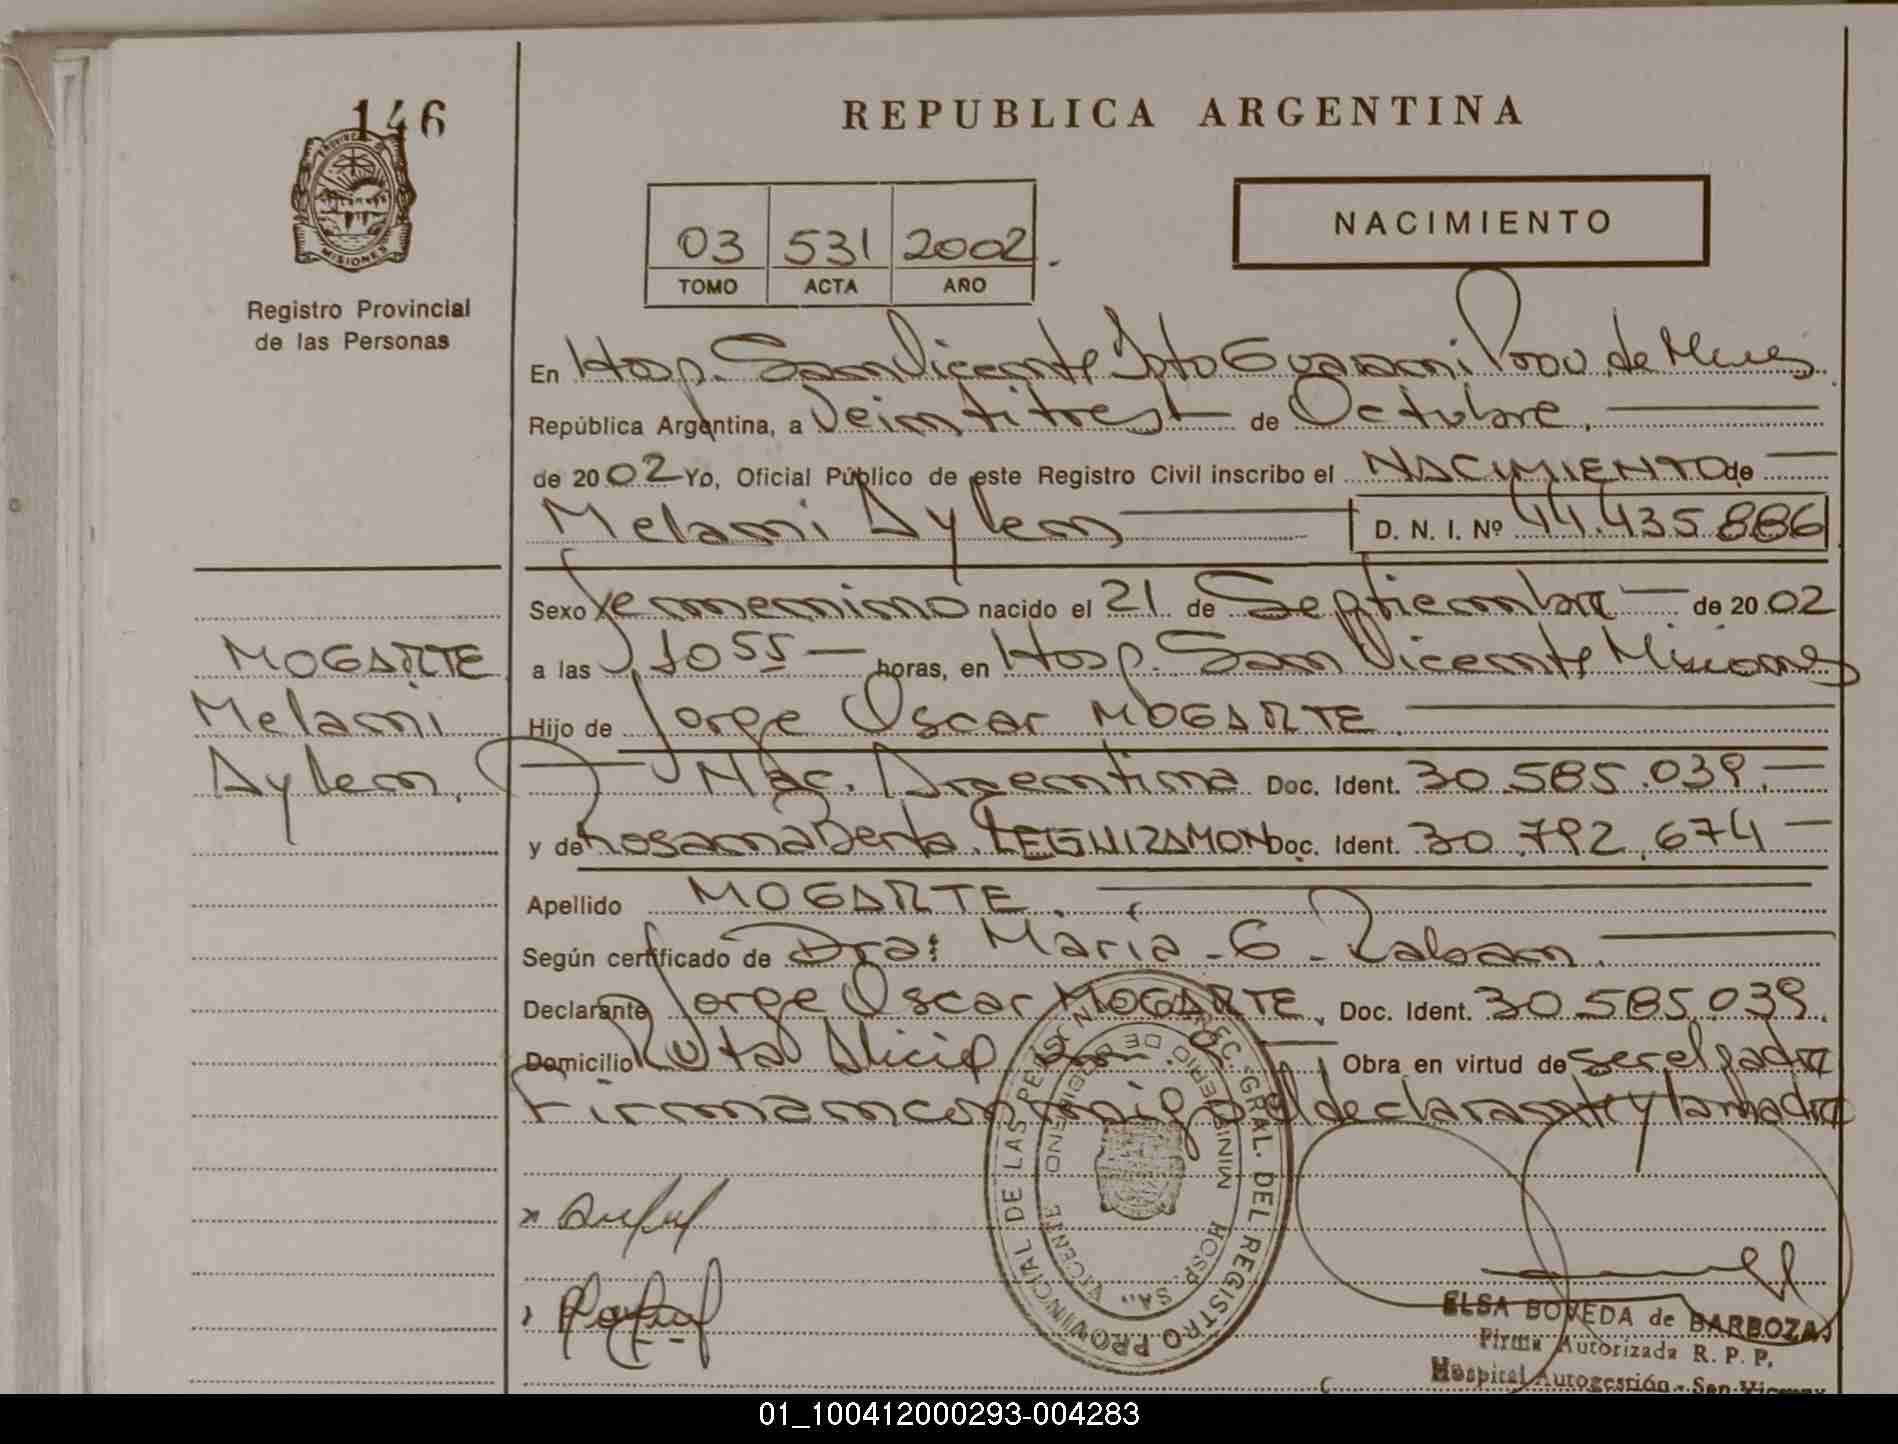 146
PROVINCIA DE
MISIONES
Registro Provincial
de las Personas
REPUBLICA ARGENTINA
03 531 2002.
TOMO ACTA AÑO
NACIMIENTO
En Hosp. San Vicente Dpto Guarani Prov de Mnes
República Argentina, a Veintitres de Octubre.
de 2002 Yo, Oficial Público de este Registro Civil inscribo el NACIMIENTO de
Melani Aylen D. N. I. Nº 44.435.886
Sexo femenino nacido el 21 de Septiembre de 2002
a las 10 55 horas, en Hosp. San Vicente Misiones
Hijo de Jorge Oscar MOGARTE
Nac. Argentina Doc. Ident. 30.585.039.
y de Rosana Berta LEGUIZAMON Doc. Ident. 30.792.674
Apellido MOGARTE.
Según certificado de Dra: Maria G.
Declarante Jorge Oscar MOGARTE. Doc. Ident. 30.585.039.
Domicilio Ruta Alicia Obra en virtud de ser el padre
Firman conmigo el declarante y la madre
MOGARTE
Melani
Aylen.
DIREC. GRAL. DEL REGISTRO PROVINCIAL DE LAS PERSONAS
MINISTERIO DE GOBIERNO
HOSP. SAN VICENTE
ELSA BOVEDA de BARBOZA
Firma Autorizada R. P. P.
Hospital Autogestión - San Vicente
01_100412000293-004283